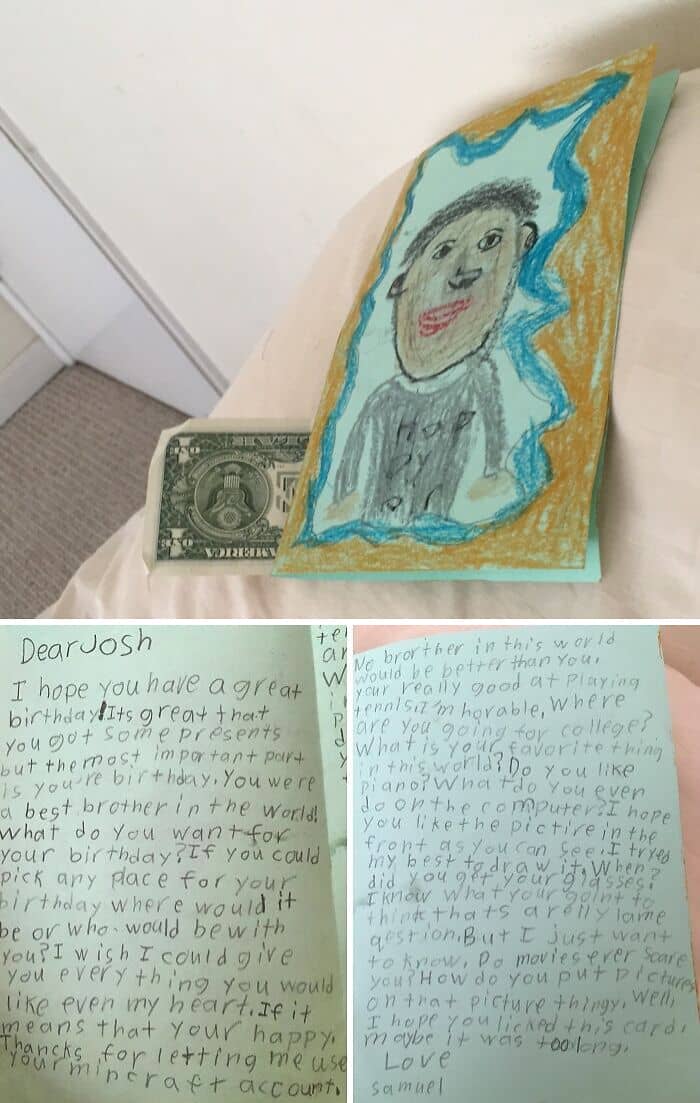 Hap
py
ONE
AMERICA
ONE
Dear Josh
I hope you have a great
birthday! Its great that
you got some presents
but the most important part
is you're birthday. You were
a best brother in the world!
What do you want for
your birthday? If you could
pick any place for your
birthday where would it
be or who would be with
you? I wish I could give
you every thing you would
like even my heart. If it
means that your happy.
Thancks for letting me use
your mincraft account.
No brorther in this world
would be better than you.
your really good at playing
tennis. I'm horable, Where
are you going for college?
What is your favorite thing
in this world? Do you like
piano? What do you even
do on the computer? I hope
you like the pictire in the
front as you can see. I tryed
my best to draw it. When?
did you get your glasses?
I know what your goint to
think thats a relly lame
qestion. But I just want
to know. Do movies ever scare
you? How do you put pictures
on that picture thingy. Well,
I hope you licked this card.
maybe it was too long.
Love
samuel